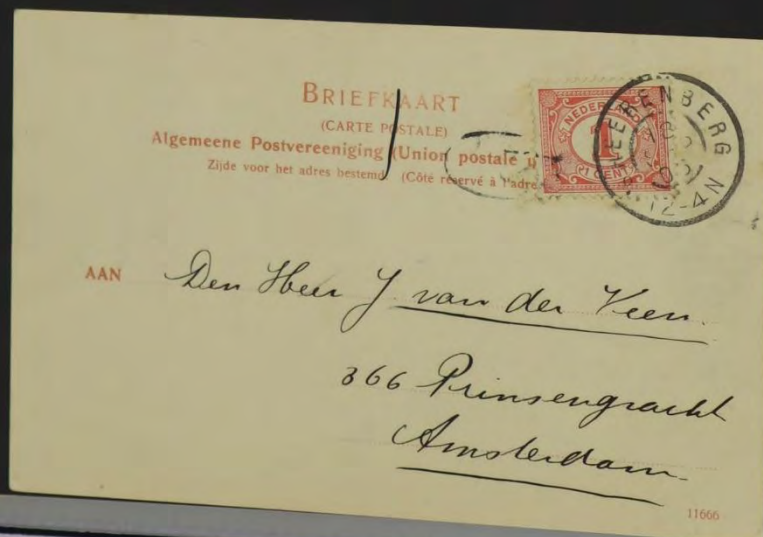 BRIEFKAART
(CARTE POSTALE)
Algemeene Postvereeniging (Union postale u
Zijde voor het adres bestemd (Côté réservé à l'adre
NEDERLAND
1
1 CENT
HEERENBERG
12-4N
AAN Den Heer J. van der Veen.
366 Prinsengracht
Amsterdam.
11666